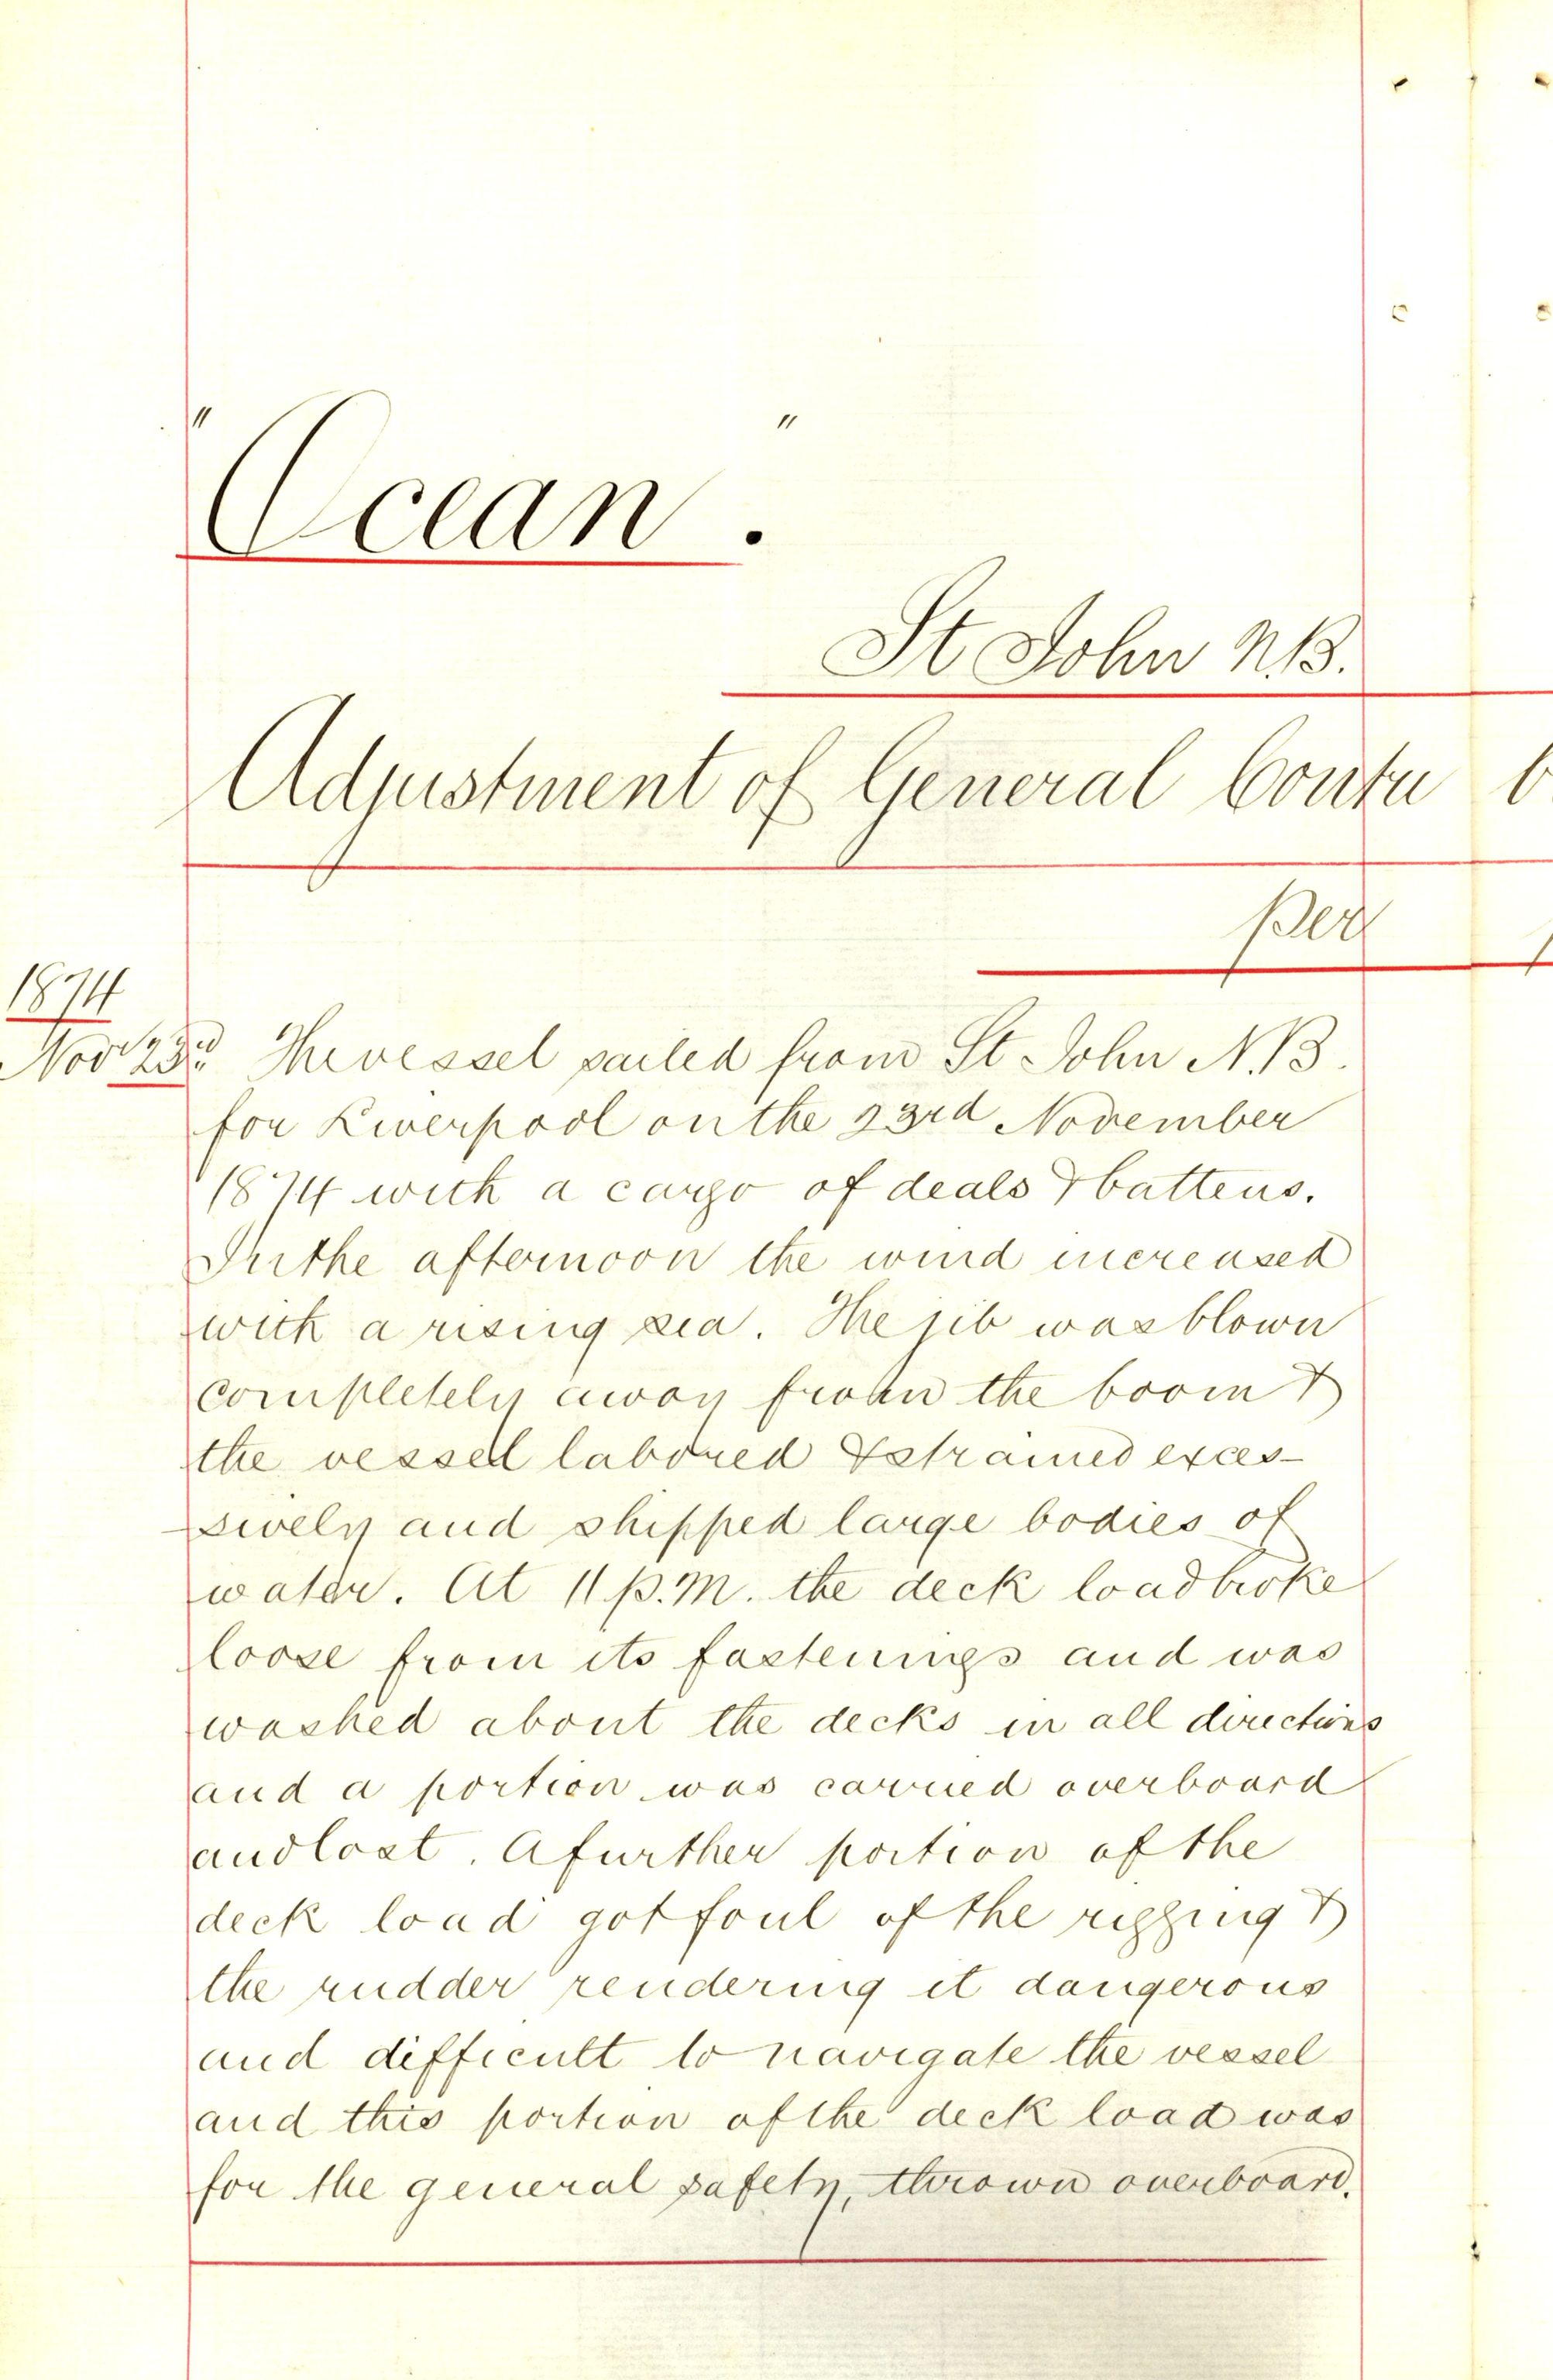 "Ocean".
St John N.B.
Adjustment of General Contri
per
1874
Nov 23rd The vessel sailed from St. John N.B.
for Liverpool on the 23rd November
1874 with a cargo of deals & battens.
In the afternoon the wind increased
with a rising sea. The jib was blown
completely away from the boom &
the vessel labored & strained exces-
sively and shipped large bodies of
water. At 11 p.m. the deck load broke
loose from its fastenings and was
washed about the decks in all directions
and a portion was carried overboard
and lost. A further portion of the
deck load got foul of the rigging &
the rudder rendering it dangerous
and difficult to navigate the vessel
and this portion of the deck load was
for the general safety, thrown overboard.